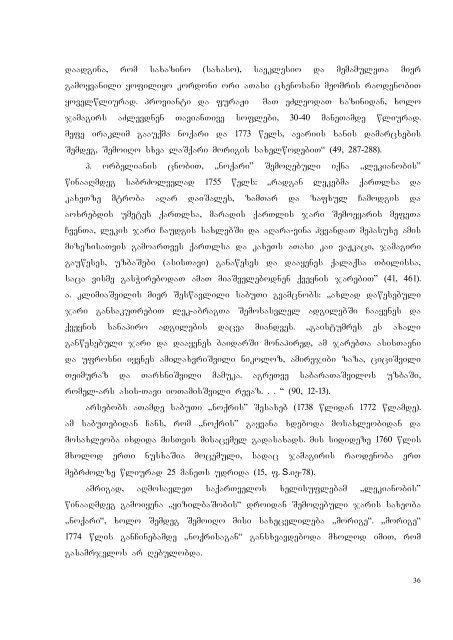 დაადგინა, რომ სახაზინო (სახასო), საეკლესიო და მემამულეთა მიერ
გამოყვანილი ყოფილიყო კორდონი ორი ათასი ცხენოსანი მეომრის რაოდენობით
ყოველწლიურად. პროვიანტი და ფურაჟი მათ ეძლეოდათ ხაზინიდან, ხოლო
ჯამაგირს აძლევდნენ თავიანთივე სოფლები, 30-40 მანეთამდე წლიურად.
მეფე ირაკლიმ გააუქმა ნოქარი და 1773 წელს, ავარიის ხანის დამარცხების
შემდეგ, შემოიღო სხვა ლაშქარი მორიგის სახელწოდებით“ (49, 287-288).
პ. ორბელიანის ცნობით, „ნოქარი“ შემოღებული იქნა „ლეკიანობის“
წინააღმდეგ საბრძოლველად 1755 წელს: „რადგან ლეკებმა ქართლსა და
კახეთზე მტრობა აღარ დაიშალეს, ზამთარ და ზაფხულ ჩამოდგის და
აოხრებდის უმეტეს ქართლსა, მარადის ქართლის ჯარი შემოეყარის მეფეთა
ჩვენთა, ლეკის ჯარი ჩაუდგის სახლებში და აღარა-ვინა ჰყვანდათ მეპასუხე ამის
მიზეზისათვის გამოართვეს ქართლსა და კახეთს ათასი კაი ვაჟკაცი, ჯამაგირი
გაუწესეს, უზბაშები (ასისთავი) განაწესეს და დააყენეს ქალაქსა თბილისსა,
საცა ვისმე გასჭირებოდათ ამათ მიაშველებოდნენ ქვეყნის ჯარებით“ (41, 461).
ა. კლიმიაშვილის მიერ შესწავლილი საბუთი გვამცნობს: „ახლად დაწესებული
ჯარი განსაკუთრებით ლეკ-აბრაგთა შემოსასვლელ ადგილებში ჩააყენეს და
ქვეყნის სანაპირო ადგილების დაცვა მიანდვეს. „გაისტუმრეს ეს ახალი
განწესებული ჯარი და დააყენეს ბაიდარში მონაპირედ, ამ ჯარებთა ასისთავნი
და უფროსნი იყვნეს ამილახვრიშვილი ნიკოლოზ, ამირეჯიბი ზაზა, ციციშვილი
თეიმურაზ და თარხნიშვილი მამუკა. აგრეთვე საბარათაშვილოს უზბაში,
რომელ-არს ასის-თავი იოთამისშვილი რევაზ. . . “ (90, 12-13).
არსებობს ათამდე საბუთი „ნოქრის“ შესახებ (1738 წლიდან 1772 წლამდე).
ამ საბუთებიდან ჩანს, რომ „ნოქრის“ გაყვანა ხდებოდა მოსახლეობიდან და
მოსახლეობა იხდიდა მისთვის მისაცემელ გადასახადს. მის სიდიდეზე 1760 წლის
მხოლოდ ერთი ნუსხაშია მოცემული, სადაც ჯამაგირის რაოდენობა ერთ
მებრძოლზე წლიურად 25 მანეთს უდრიდა (15, ფ. შ.იე-78).
ამრიგად, აღმოსავლეთ საქართველოს ხელისუფლებამ „ლეკიანობის“
წინააღმდეგ გამოიყენა „ყიზილბაშობის“ დროიდან შემოღებული ჯარის სახეობა
„ნოქარი“, ხოლო შემდეგ შემოიღო მისი სახეცვლილება „მორიგე“. „მორიგე“
1774 წლის განჩინებამდე „ნოქრისაგან“ განსხვავდებოდა მხოლოდ იმით, რომ
გასამრჯელოს არ ღებულობდა.
36